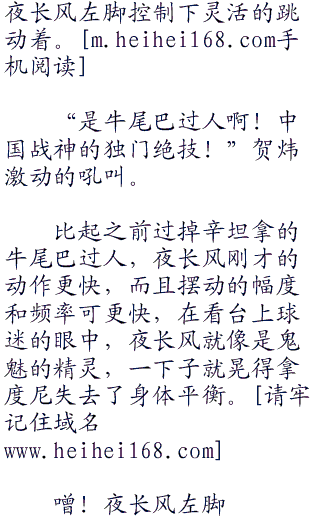 夜长风左脚控制下灵活的跳
动着。[m.heihei168.com手
机阅读]
“是牛尾巴过人啊！中
国战神的独门绝技！”贺炜
激动的吼叫。
比起之前过掉辛坦拿的
牛尾巴过人，夜长风刚才的
动作更快，而且摆动的幅度
和频率可更快，在看台上球
迷的眼中，夜长风就像是鬼
魅的精灵，一下子就晃得拿
度尼失去了身体平衡。[请牢
记住域名
www.heihei168.com]
噌！夜长风左脚